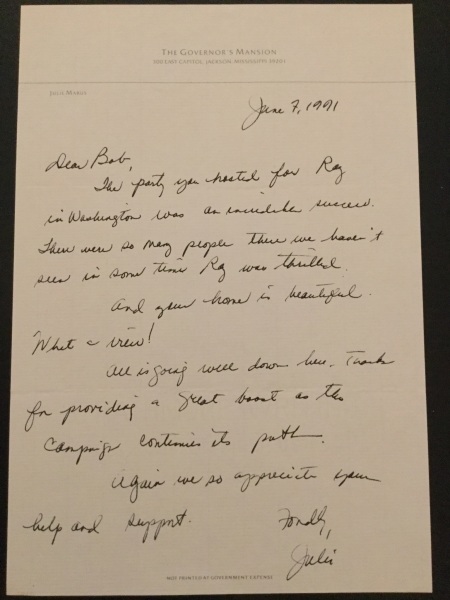 THE GOVERNOR'S MANSION
300 EAST CAPITOL, JACKSON MISSISSIPPI 39201
JULIE MABUS
June 7, 1991
Dear Bob,
The party you hosted for Ray
in Washington was an incredible success.
There were so many people there we haven't
seen in some time Ray was thrilled.
And your home is beautiful.
What a view!
All is going well down here. Thanks
for providing a great boost as the
campaign continues its path.
Again we so appreciate your
help and support.
Fondly,
Julie
NOT PRINTED AT GOVERNMENT EXPENSE